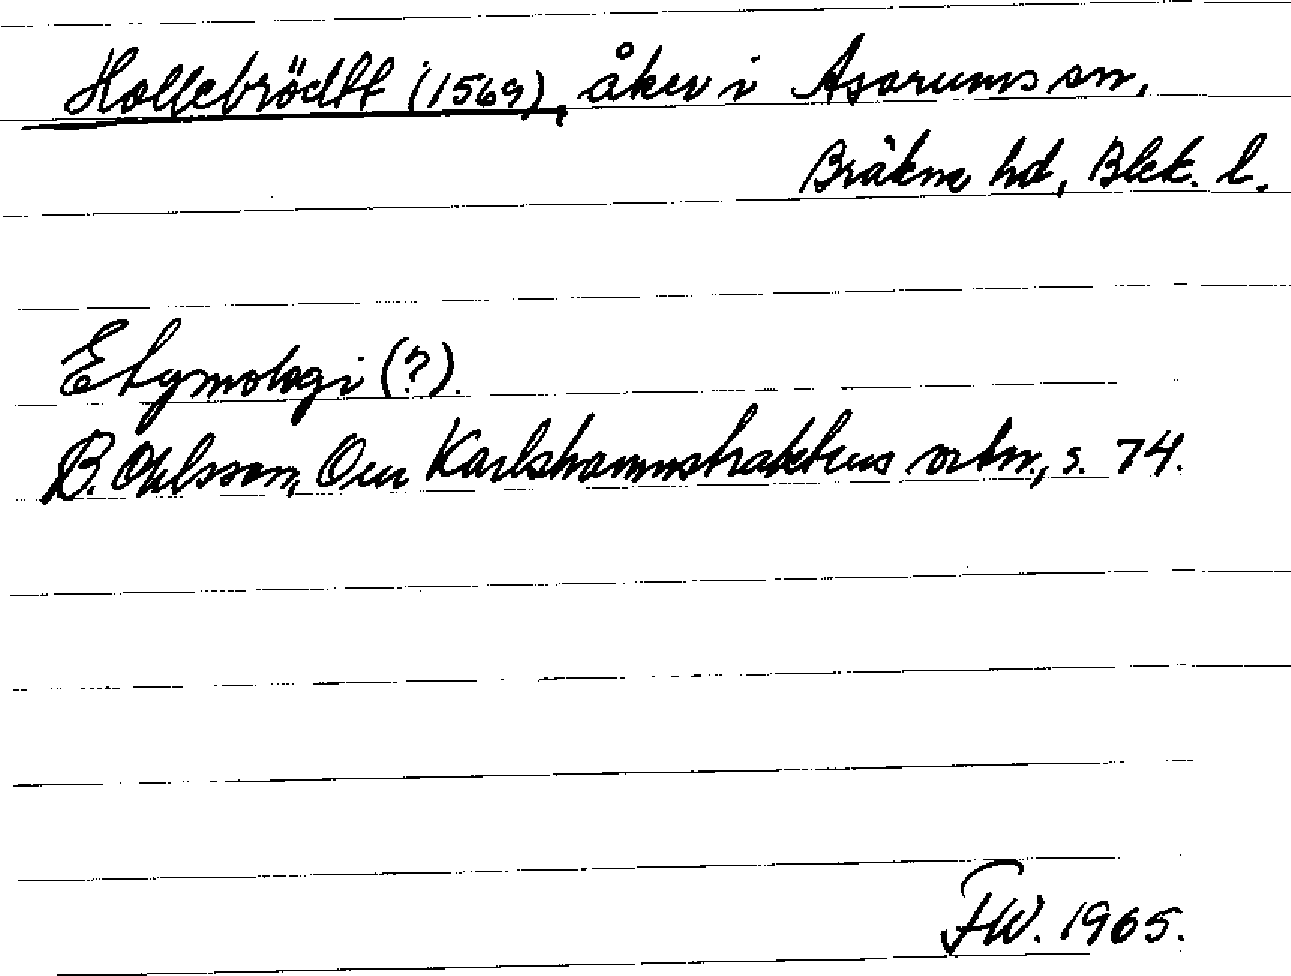 Hollebrödtt (1569), åker i Asarums sn,
Bräkne hd, Blek. l.
Etymologi (?).
B. Ohlsson, Om Karlshamnstraktens ortn., s. 74.
FW. 1965.